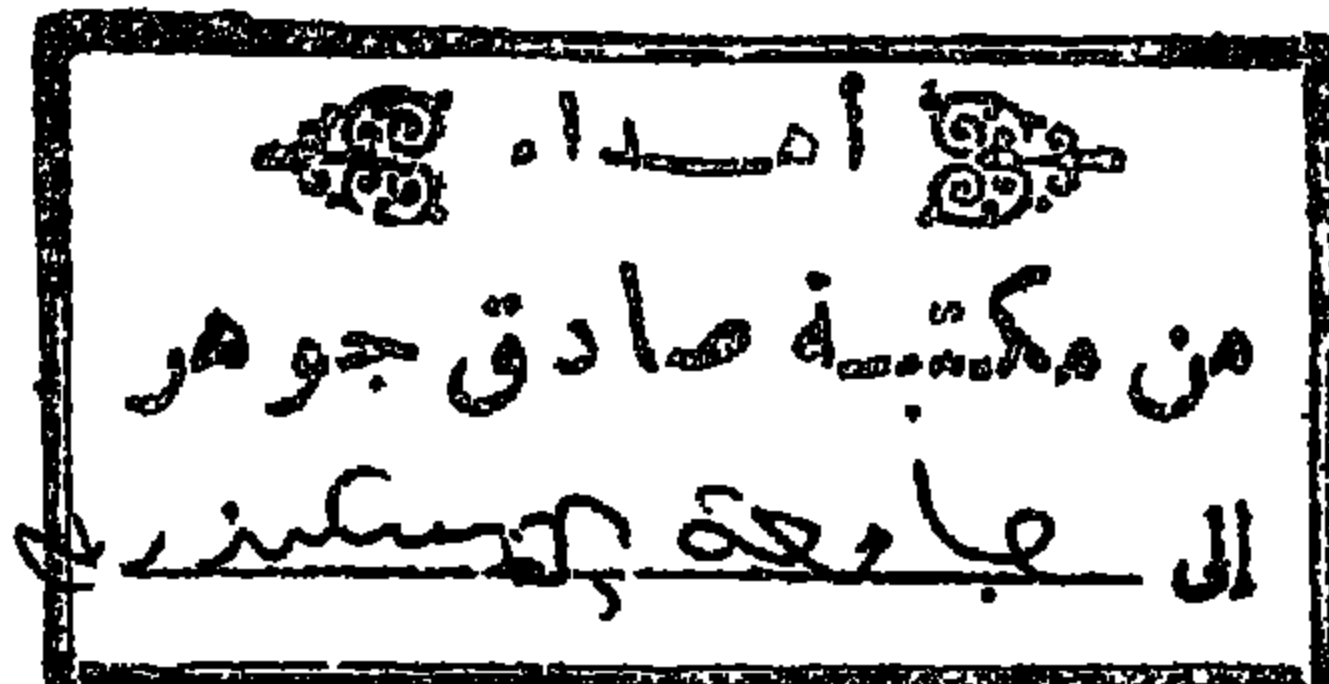 أهداء
من مكتبة صادق جوهر
الى جامعة الإسكندرية